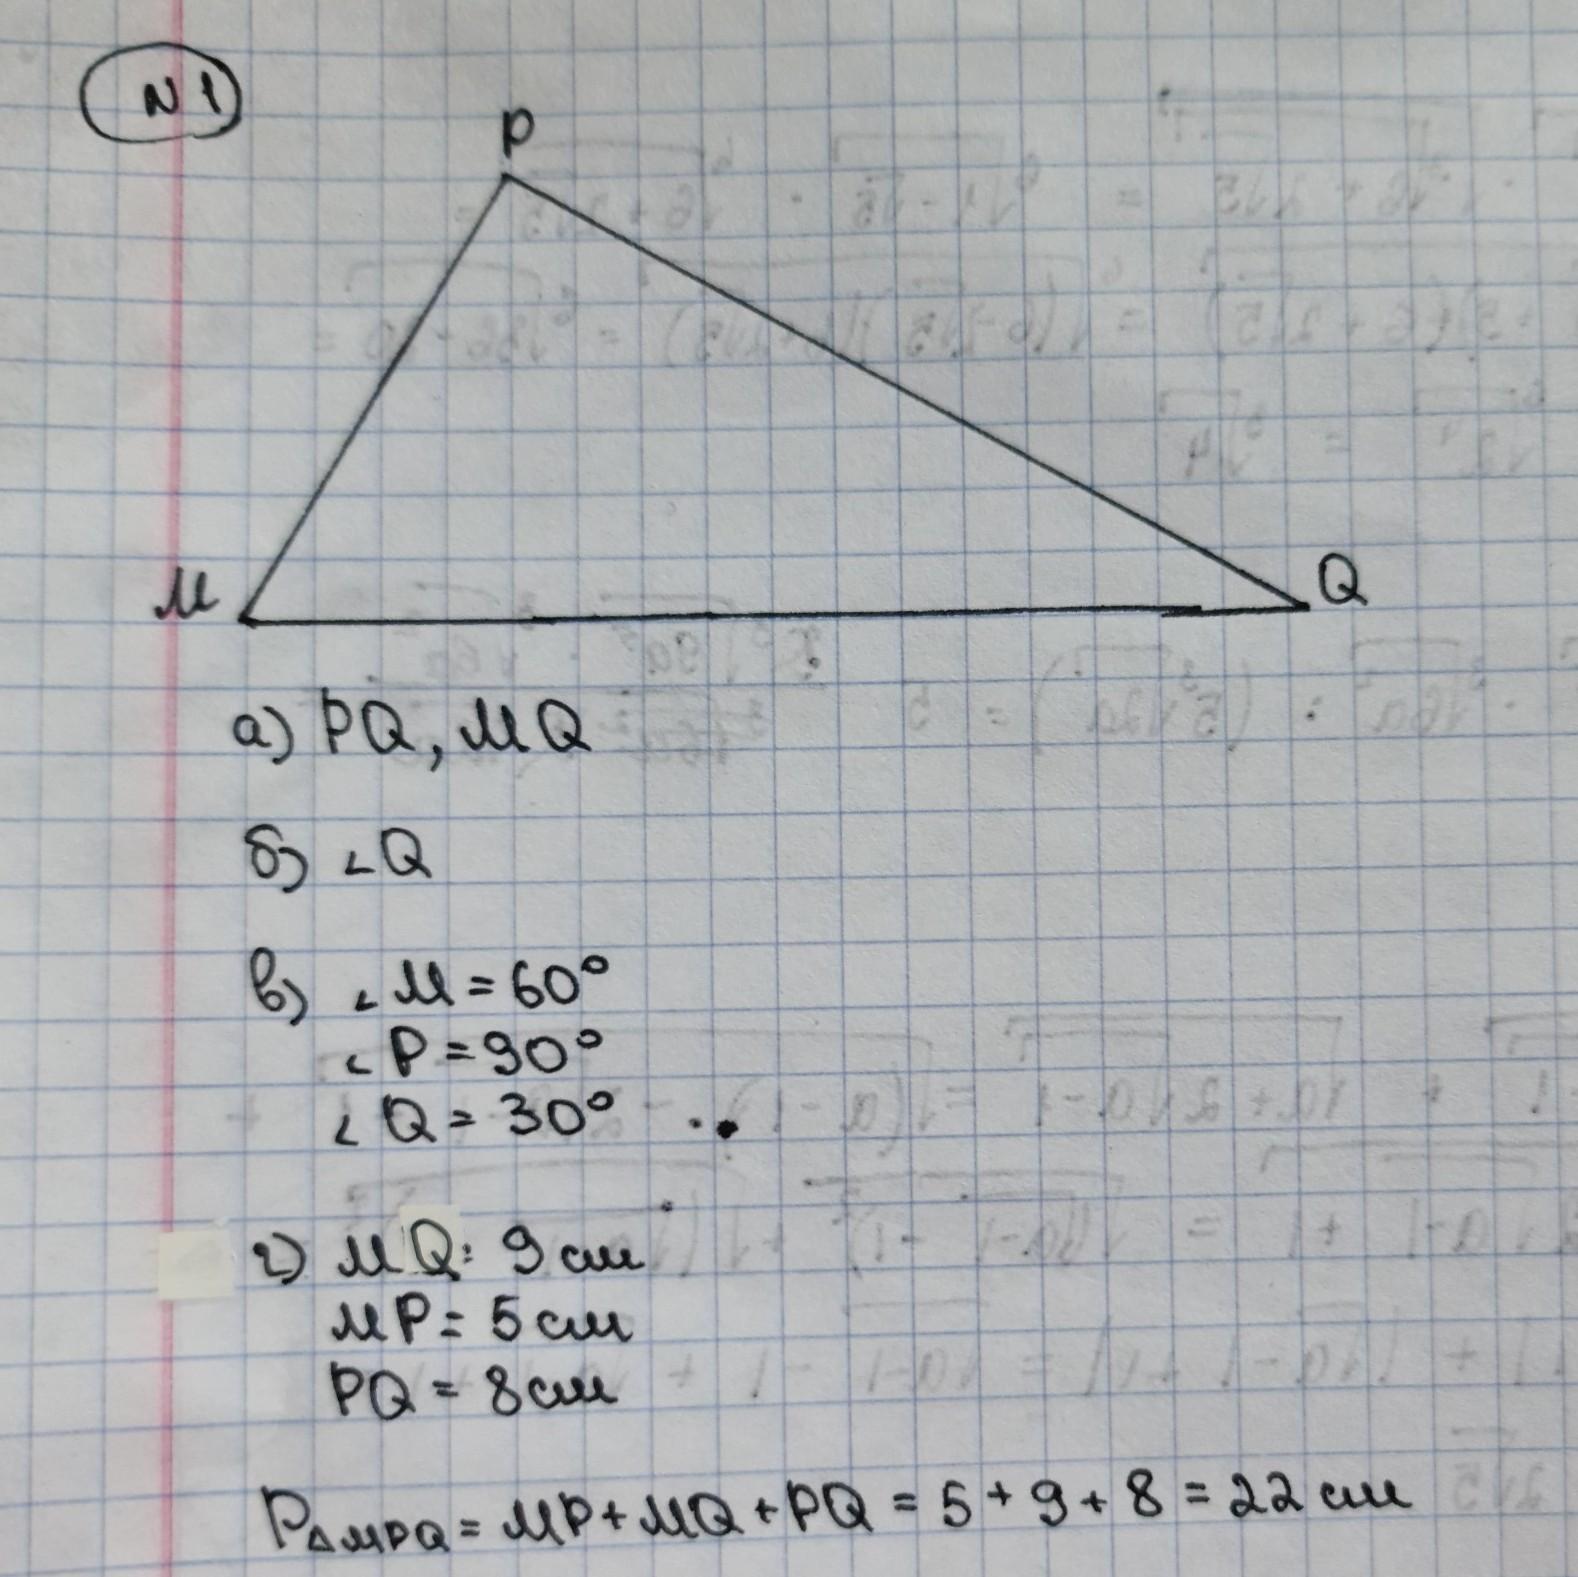 N1
P
M
Q
а) PQ, MQ
б) ∠Q
в) ∠M = 60°
∠P = 90°
∠Q = 30°
г) MQ: 9 см
MP = 5 см
PQ = 8 см
P△MPQ = MP + MQ + PQ = 5 + 9 + 8 = 22 см